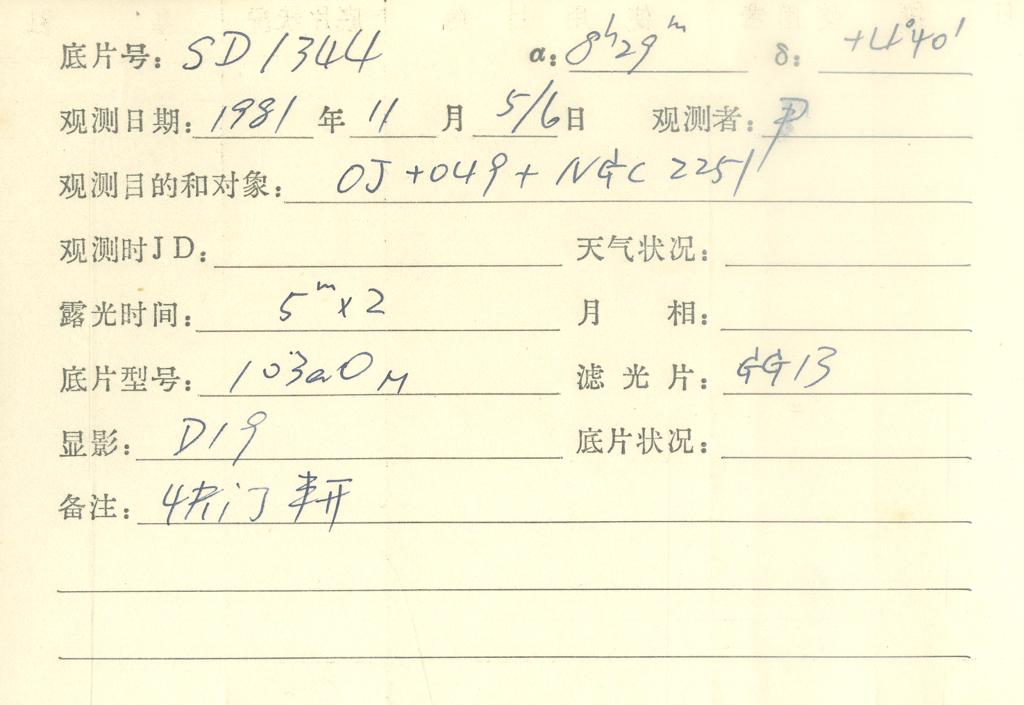 底片号: SD1344 α: 8ʰ29ᵐ δ: +4°40′
观测日期: 1981 年 11 月 5/6 日 观测者: 尹
观测目的和对象: OJ+049+NGC 2251
观测时JD: 天气状况:
露光时间: 5ᵐ×2 月 相:
底片型号: 103aO M 滤光片: GG13
显影: D19 底片状况:
备注: 快门